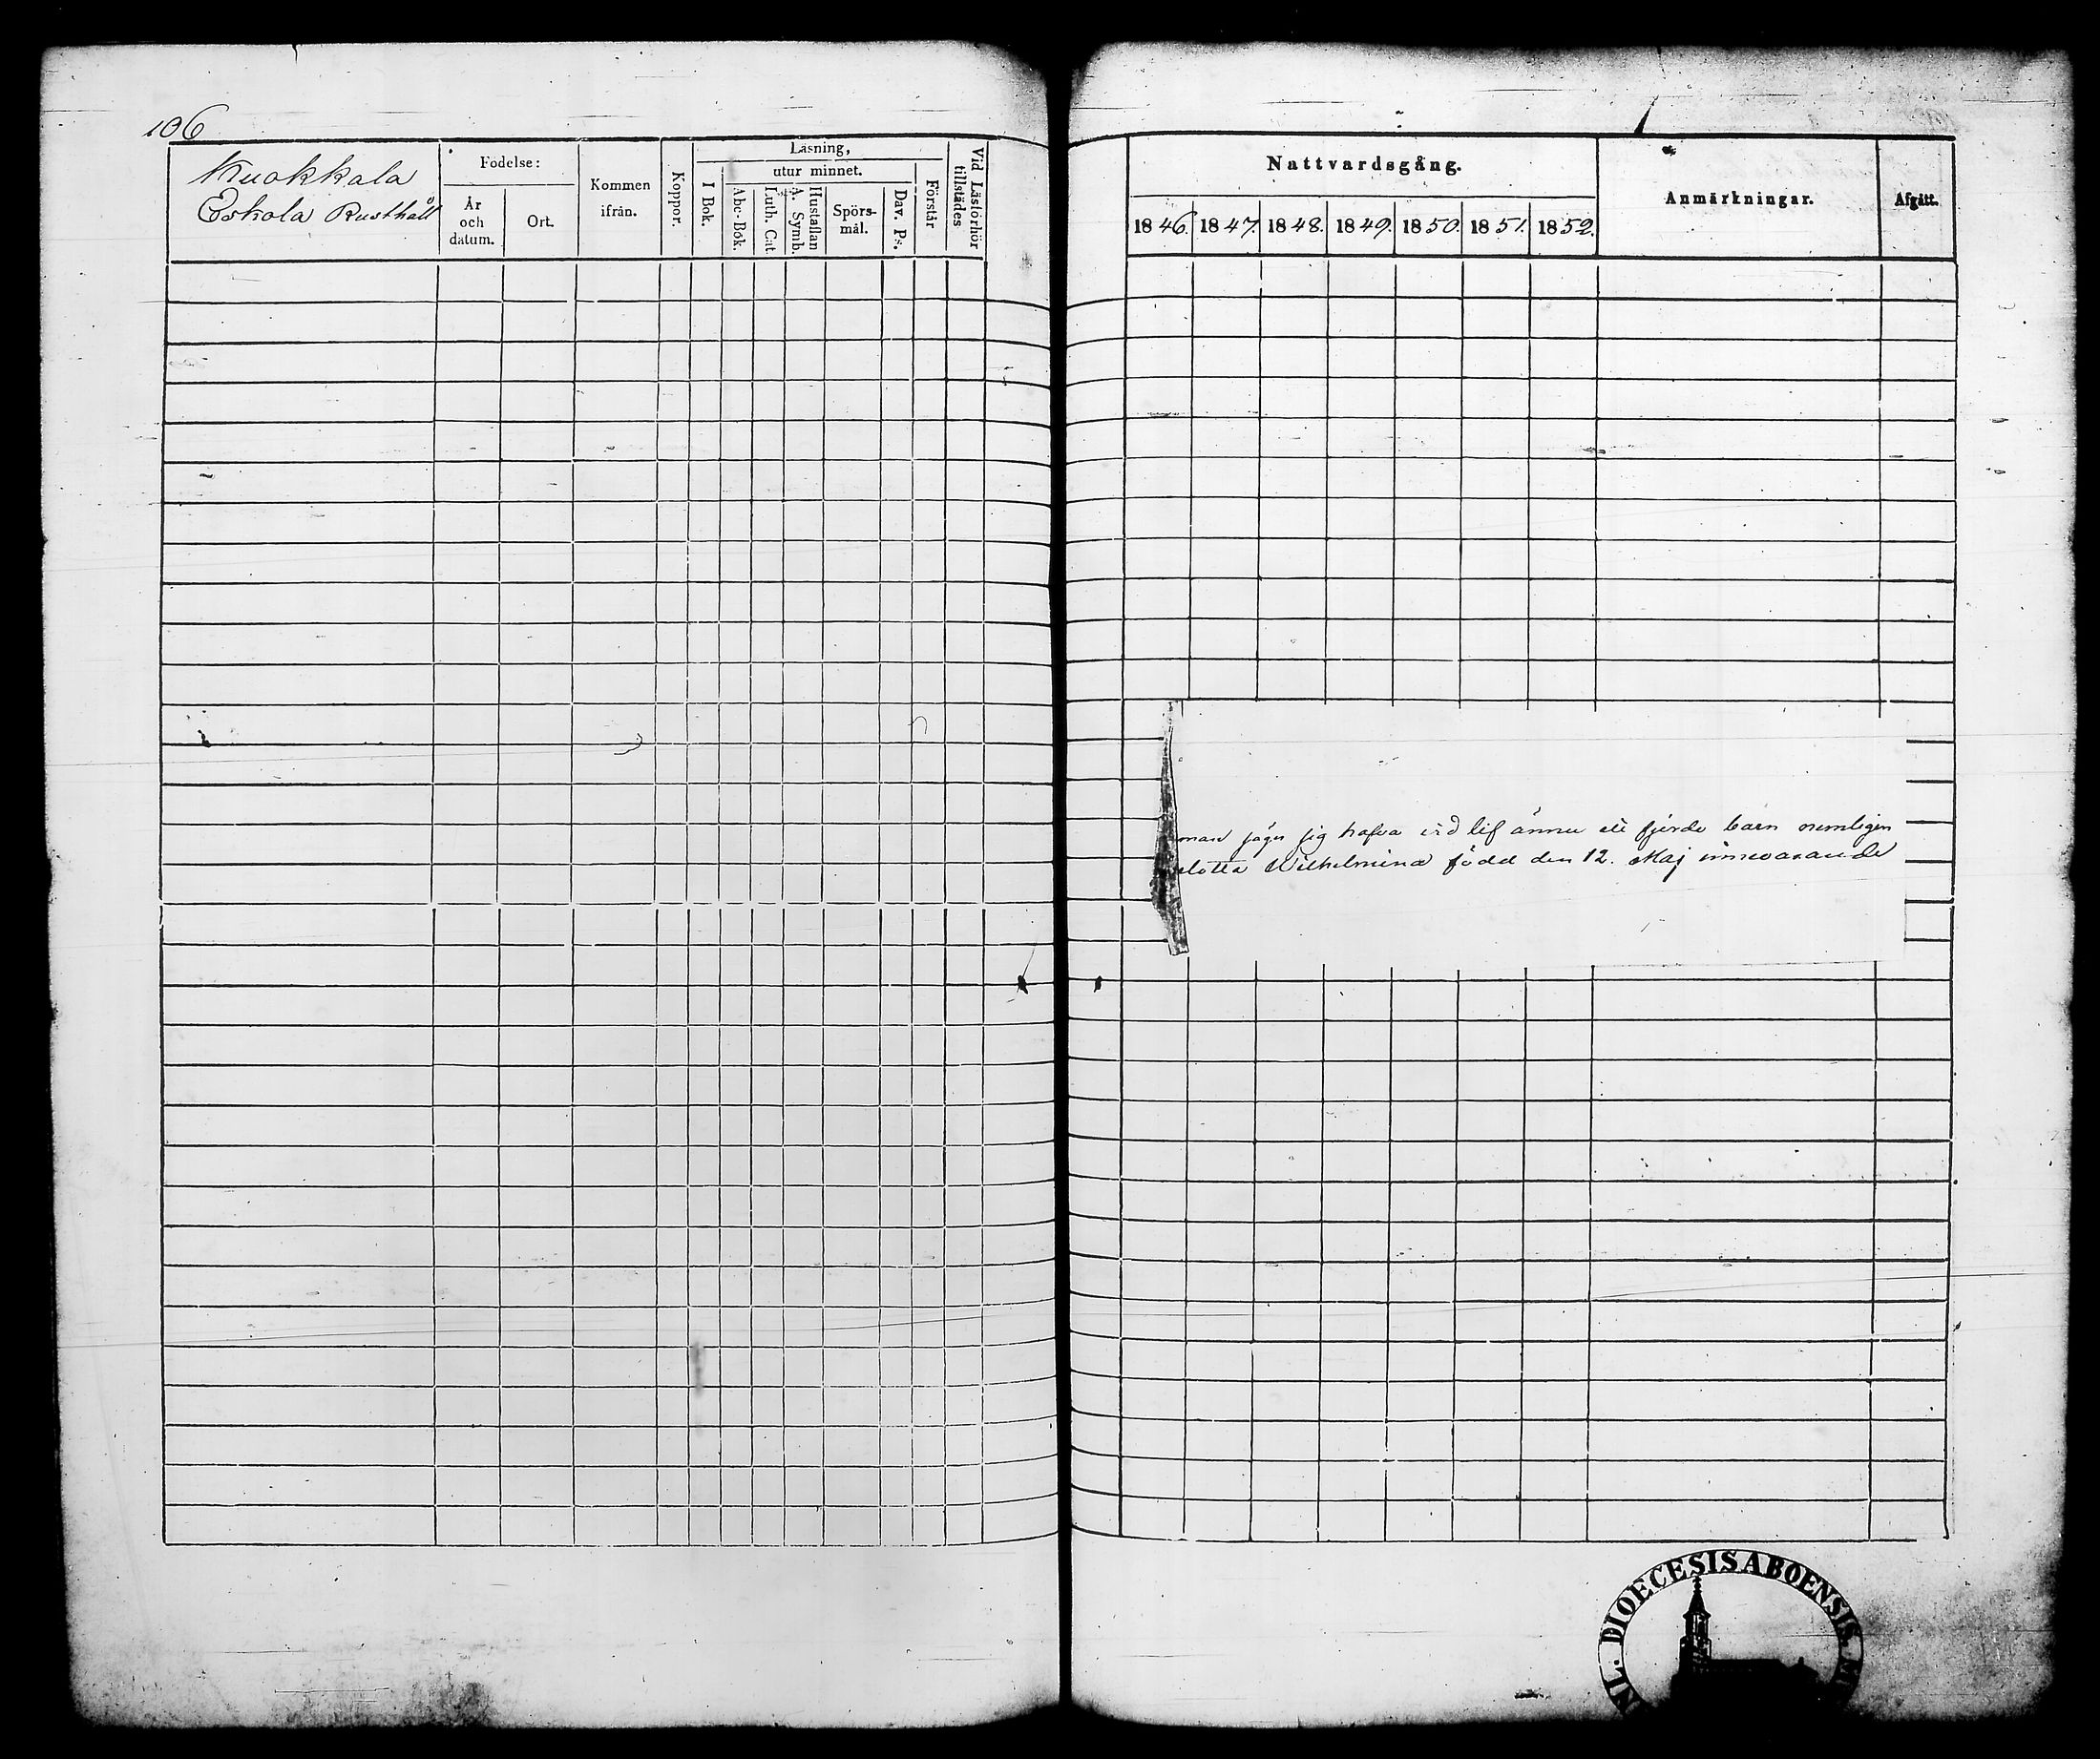 106
Kuokkala
Eskola Rusthåll
Fodelse:
År
och
datum.
Ort.
Kommen
ifrån.
Koppor.
Läsning,
I Bok.
utur minnet.
Abc-Bok.
Luth. Cat.
A. Symb.
Hustaflan
Spörs-
mål.
Dav. Ps.
Förstår
Vid Läsförhör
tillstädes
Nattvardsgång.
1846. 1847. 1848. 1849. 1850. 1851. 1852.
Anmärkningar.
Afgått.
man säger sig hafva vid lif ännu ett fjerde barn nemligen
lotta Wilhelmina född den 12. Maj innevarande
DIOECESIS ABOENSIS.